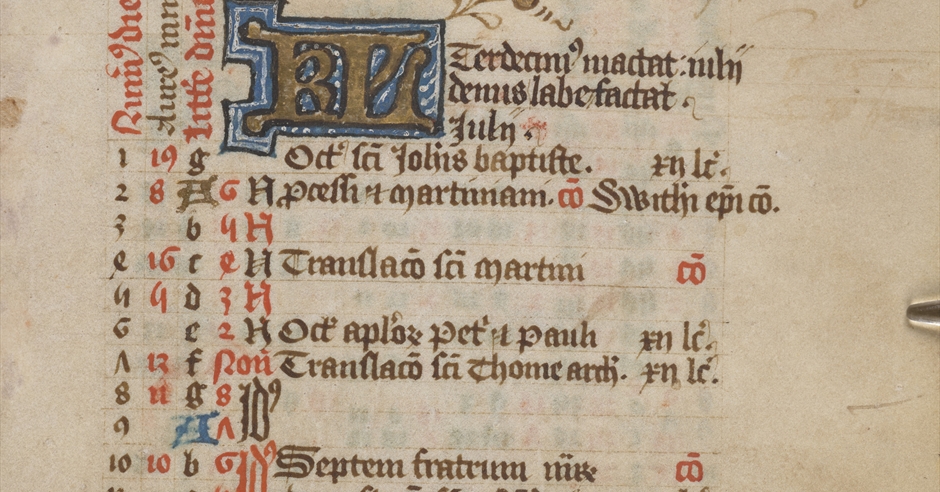 Numꝰ die
Aureꝰ num
Littē dnī
KL Terdecimꝰ mactat: iulij
denus labefactat.
Julij.
1 19 g Octꝰ scī Johīs baptiste. xij lc̄.
2 8 A 6 N Pcessi ⁊ martiniani. cō Swithi ep̄i cō.
3 b 5 N
4 16 c 4 N Translacō scī martini cō
5 5 d 3 N
6 e 2 N Octꝰ aplōꝝ Petꝰ ⁊ Pauli xij lc̄.
7 13 f Non̄ Translacō scī Thome arch. xij lc̄.
8 ii g 8 Idꝰ
9 A 7
10 10 b 6 Idꝰ Septem fratrum mr̄ cō